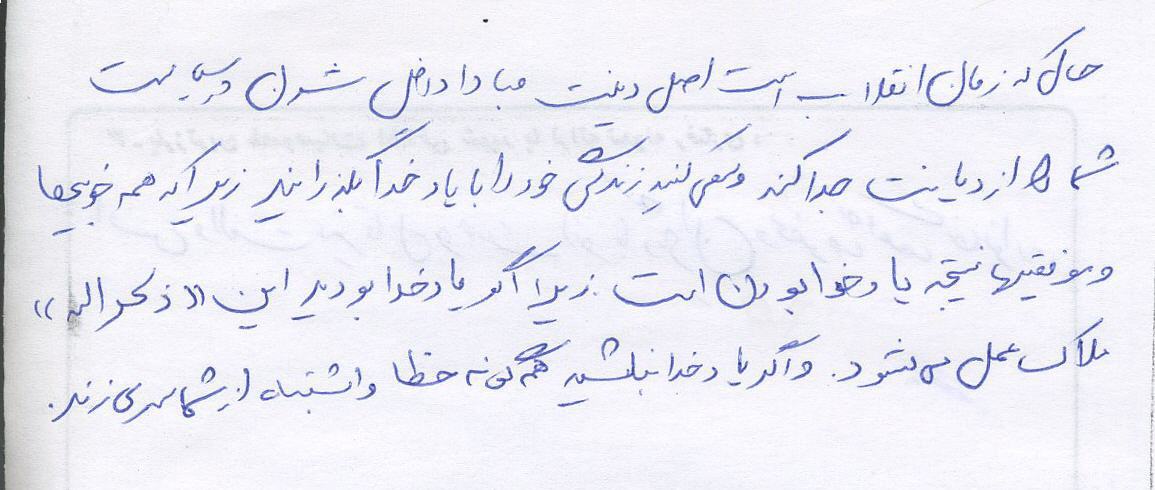 حال که زمان انقلاب است اصل دینت مبادا داخل شدن در سیاست
شما را از دیانت جدا کند و سعی کنید زندگی خود را با یاد خدا بگذرانید زیرا که همه خوبیها
و موفقیتها نتیجه یاد خدا بودن است. زیرا اگر یاد خدا بودید این «ذکر الله»
ملاک عمل می شود. و اگر یاد خدا نباشید همه گونه خطا و اشتباه از شما سر می زند.